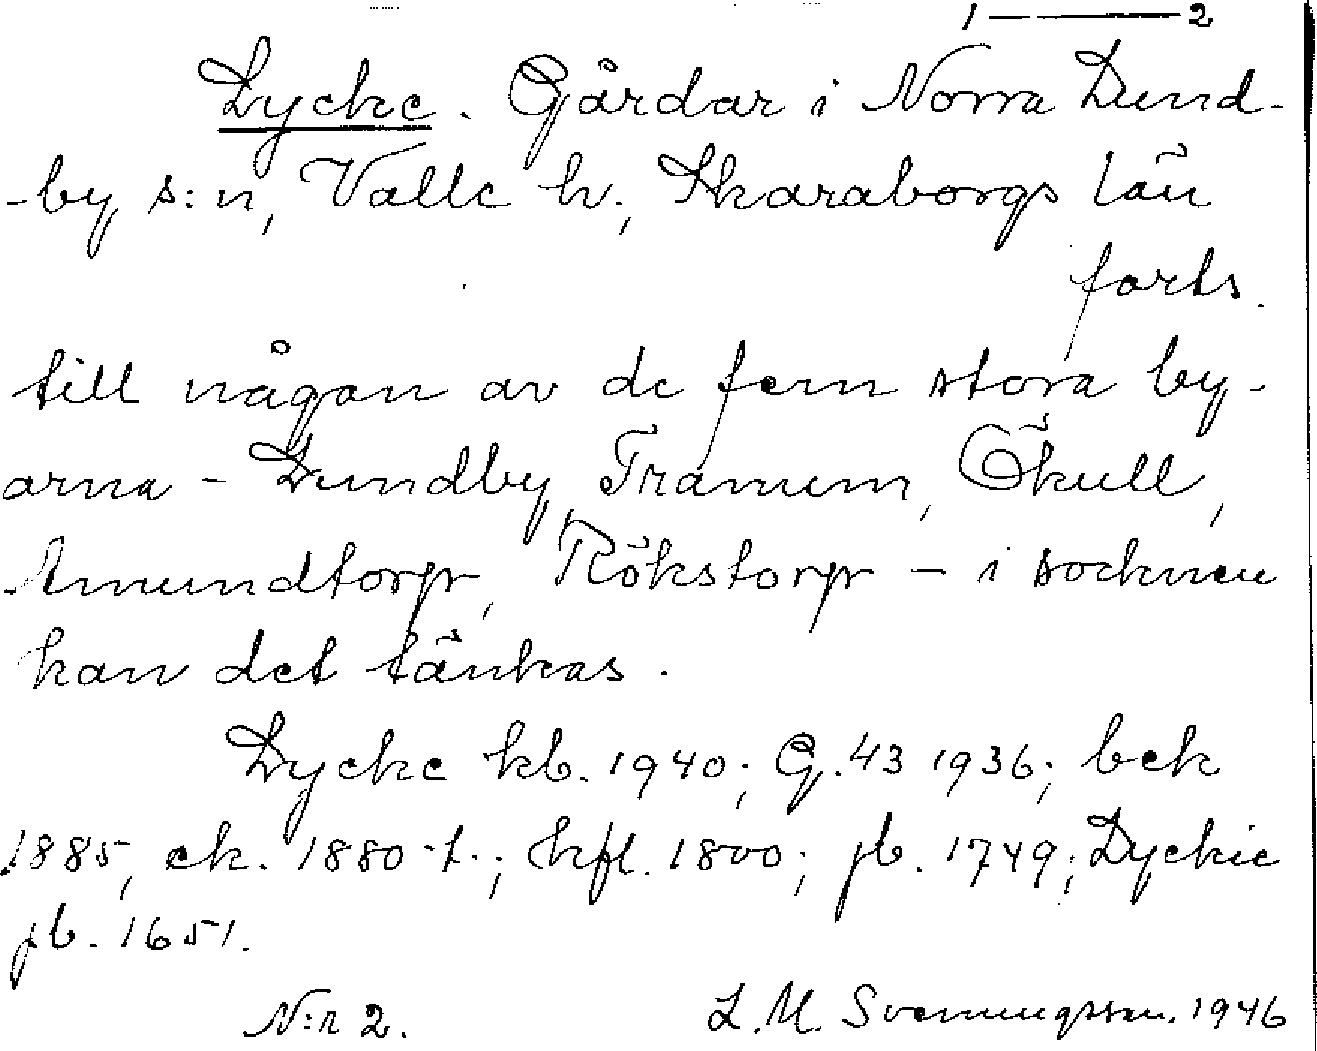 1 — — 2
Lycke. Gårdar i Norra Lund-
-by s:n, Valle h., Skaraborgs län
forts.
till någon av de fem stora by-
arna - Lundby, Tranum, Ökull,
Amundtorp, Rökstorp - i socknen
kan det tänkas.
Lycke kb. 1940; G. 43 1936; bek
1885, ek. 1880-t.; hfl. 1800; jb. 1749; Lyckie
jb. 1651.
N:r 2.
L. M. Svenungsson. 1946